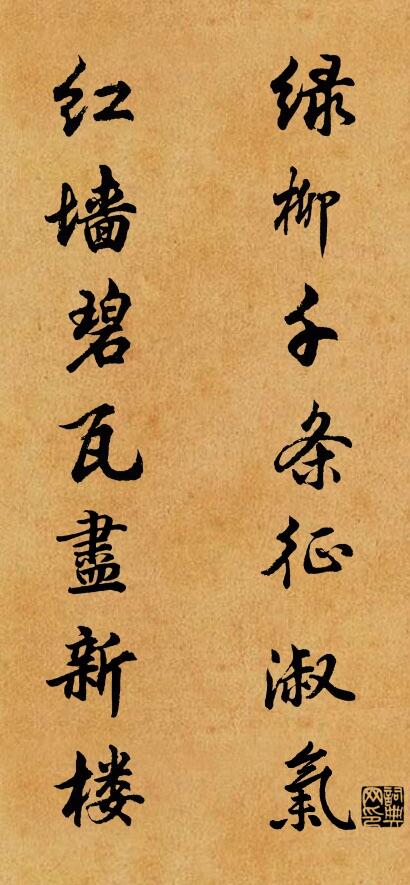 绿柳千条征淑氣
红墙碧瓦盡新楼
詞典网印